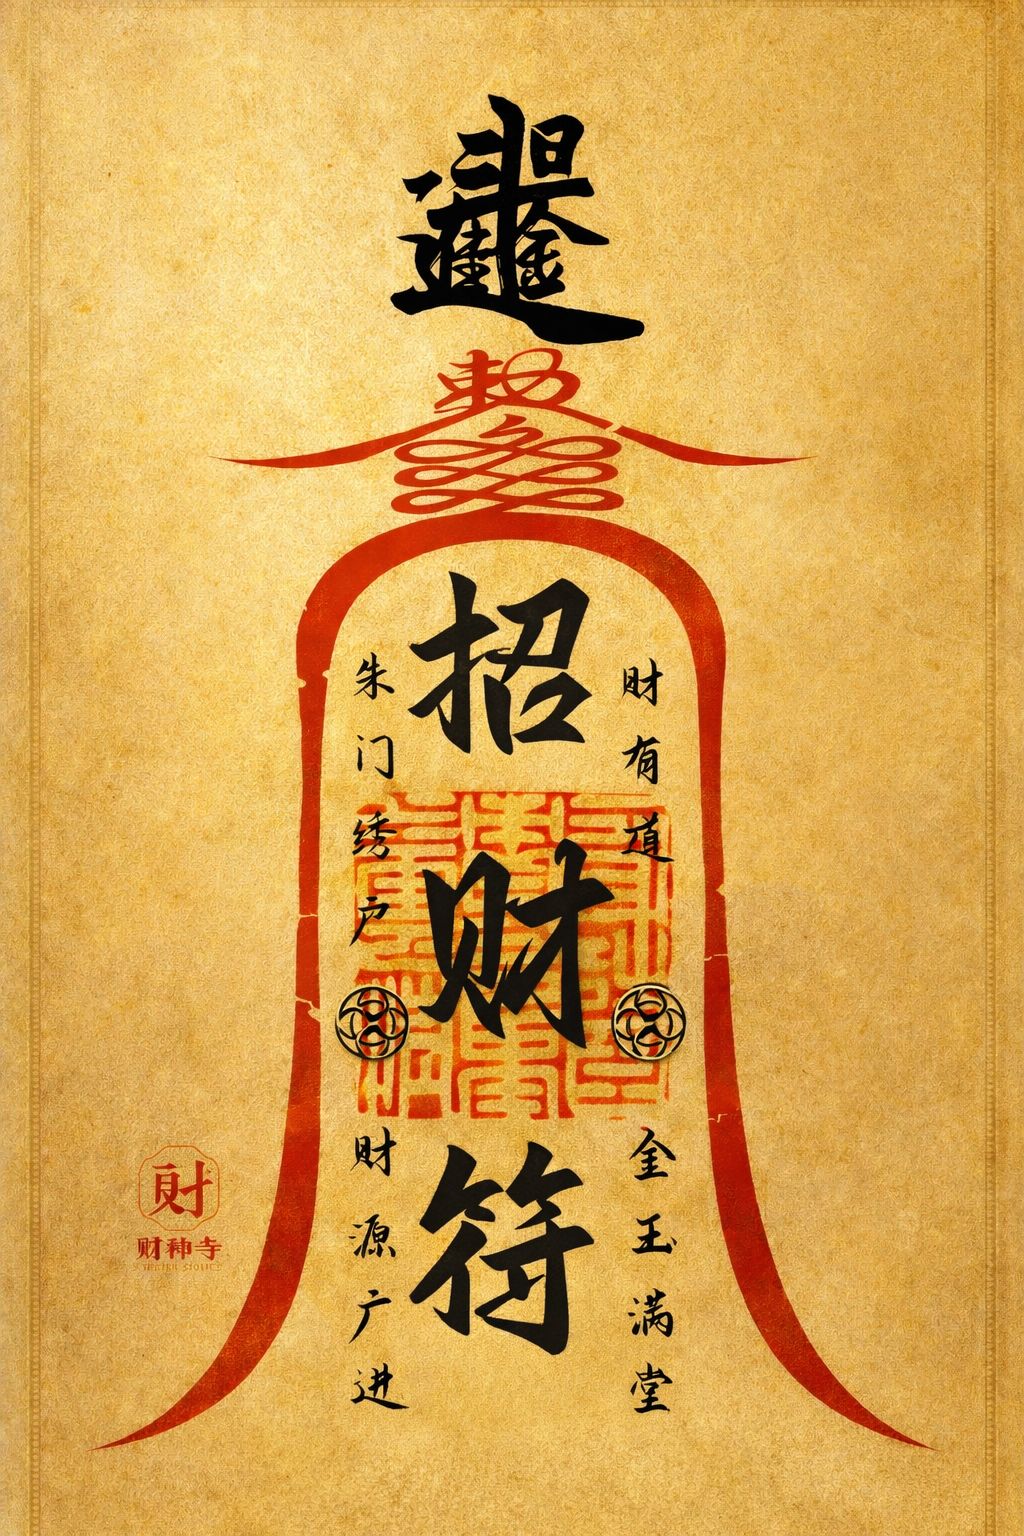 日進斗金
敕
财有道
金玉满堂
招财符
朱门绣户
财源广进
财
财神寺